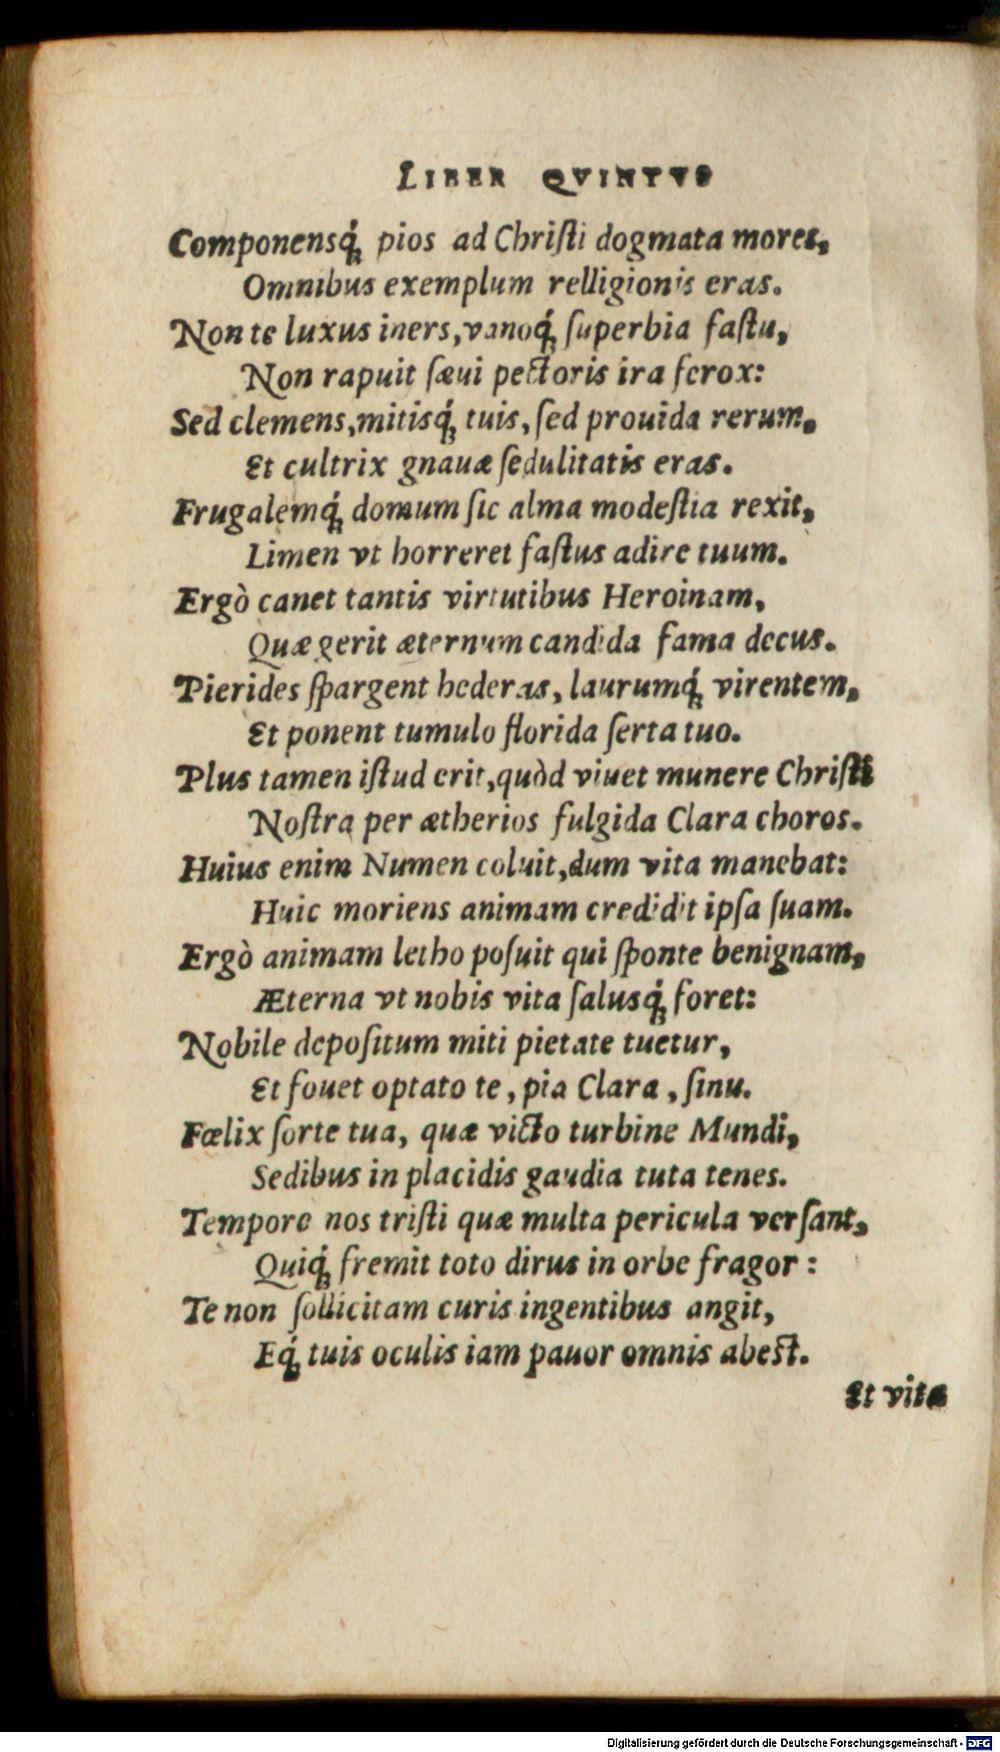 LIBER QVINTVS
Componensq́; pios ad Chriſti dogmata mores,
Omnibus exemplum relligionis eras.
Non te luxus iners, vanoq́; ſuperbia faſtu,
Non rapuit ſæui pectoris ira ferox:
Sed clemens, mitisq́; tuis, ſed prouida rerum,
Et cultrix gnauæ ſedulitatis eras.
Frugalemq́; domum ſic alma modeſtia rexit,
Limen vt horreret faſtus adire tuum.
Ergò canet tantis virtutibus Heroinam,
Quæ gerit æternum candida fama decus.
Pierides ſpargent hederas, laurumq́; virentem,
Et ponent tumulo florida ſerta tuo.
Plus tamen iſtud erit, quòd viuet munere Chriſti
Noſtra per ætherios fulgida Clara choros.
Huius enim Numen coluit, dum vita manebat:
Huic moriens animam credidit ipſa ſuam.
Ergò animam letho poſuit qui ſponte benignam,
Æterna vt nobis vita ſalusq́; foret:
Nobile depoſitum miti pietate tuetur,
Et fouet optato te, pia Clara, ſinu.
Fœlix ſorte tua, quæ victo turbine Mundi,
Sedibus in placidis gaudia tuta tenes.
Tempore nos triſti quæ multa pericula verſant,
Quiq́; fremit toto dirus in orbe fragor:
Te non ſollicitam curis ingentibus angit,
Eq́; tuis oculis iam pauor omnis abest.
Et vitæ
Digitalisierung gefördert durch die Deutsche Forschungsgemeinschaft - DFG